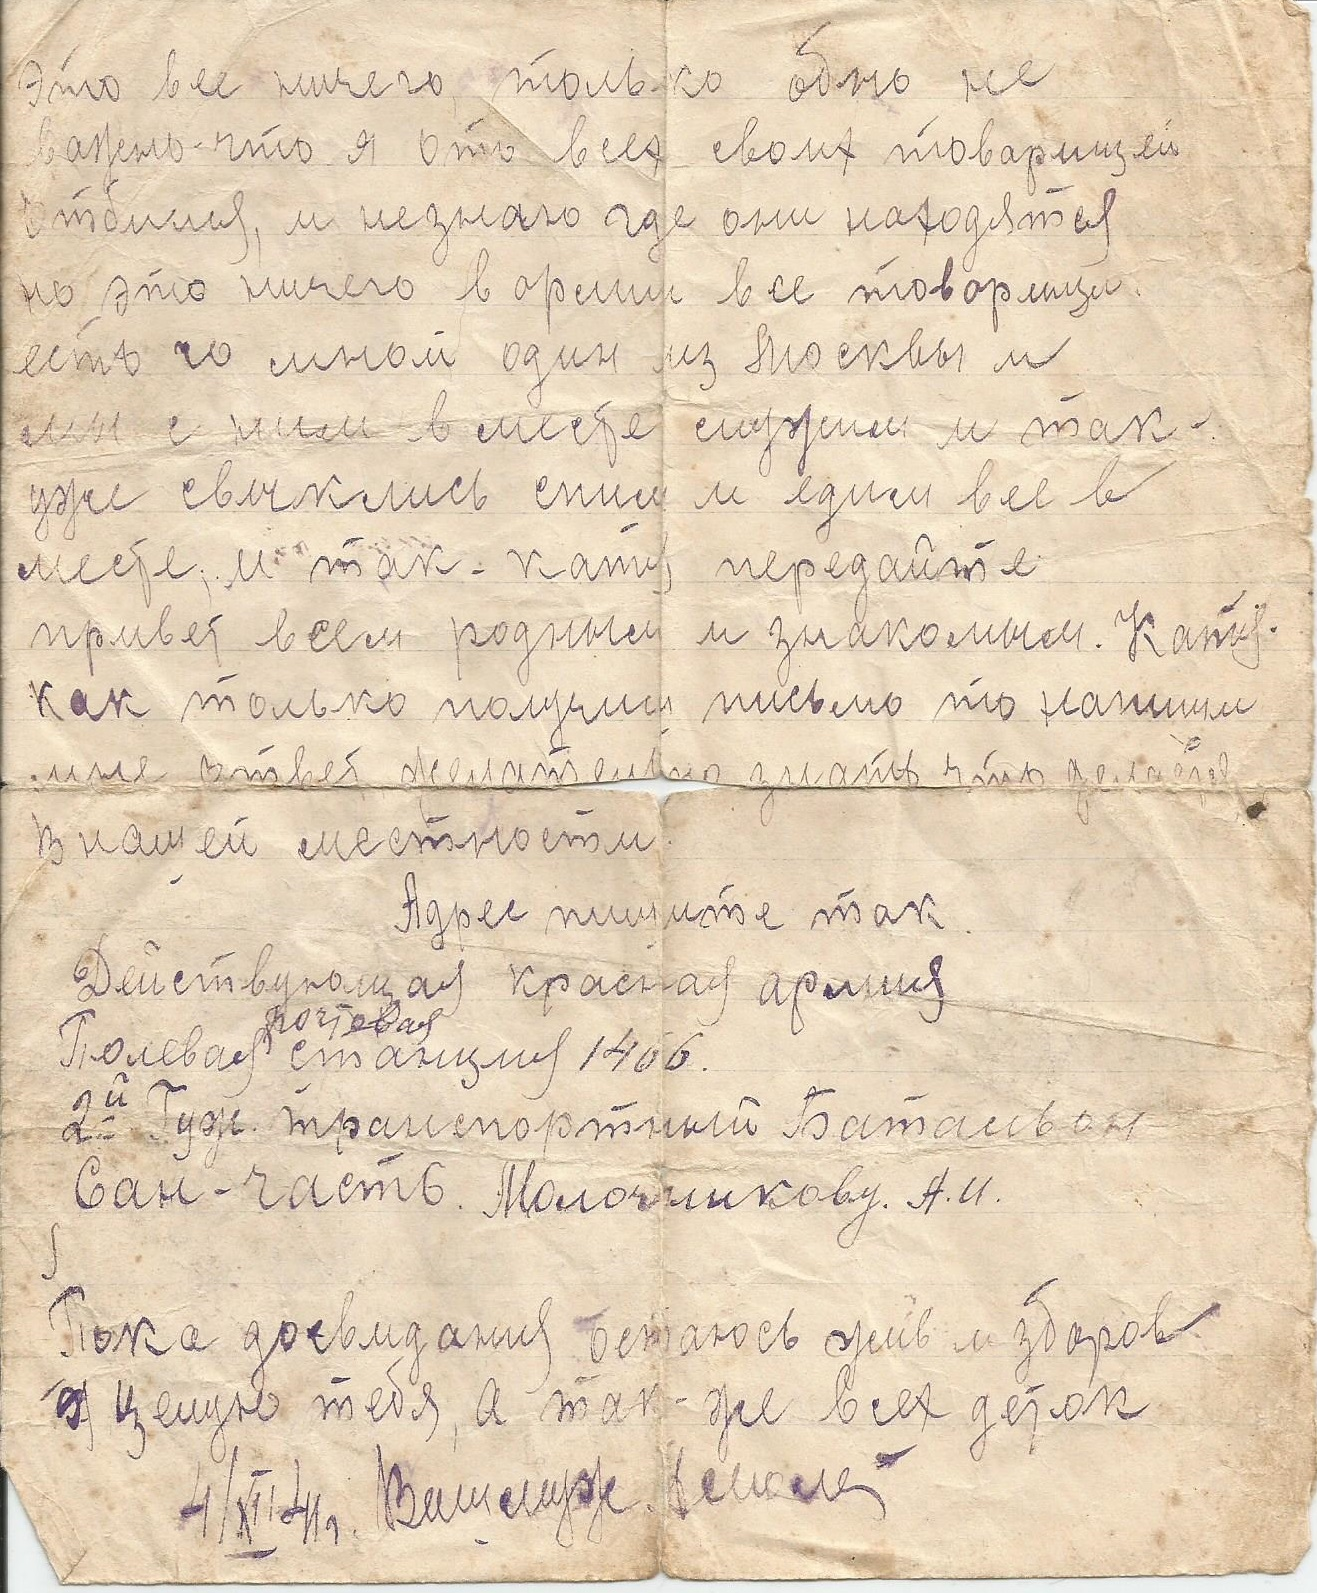 Это все ничего, только одно не
важно-что я ото всех своих товарищей
отбился, и незнаю где они находятся
но это ничего в армии все товарищи.
есть со мной один из Москвы и
мы с ним в месте служим и так-
уже свыклись спим и едим все в
месте, и так-катя передайте
привет всем родным и знакомым. Катя.
как только получиш письмо то напиши
мне ответ желательно знать что делается
в нашей местности.
Адрес пишите так.
Действующая красная армия
Полевая почтовая станция 1406.
2й Гуж. транспортный Батальон
Сан-часть. Молочникову. А.И.
Пока досвидания остаюсь жив и здоров
я целую тебя, а так-же всех деток
4/XII-41г. Ваш муж.